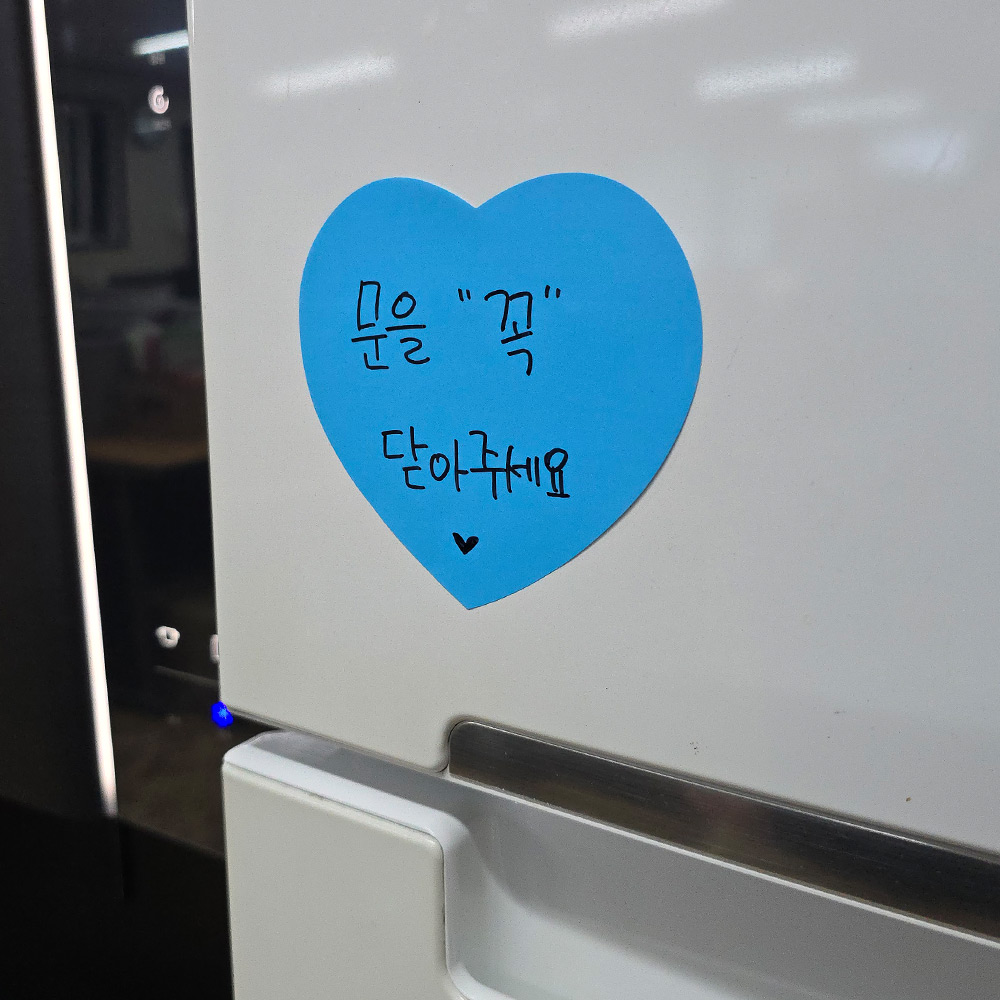 문을 "꼭"
닫아주세요
♥